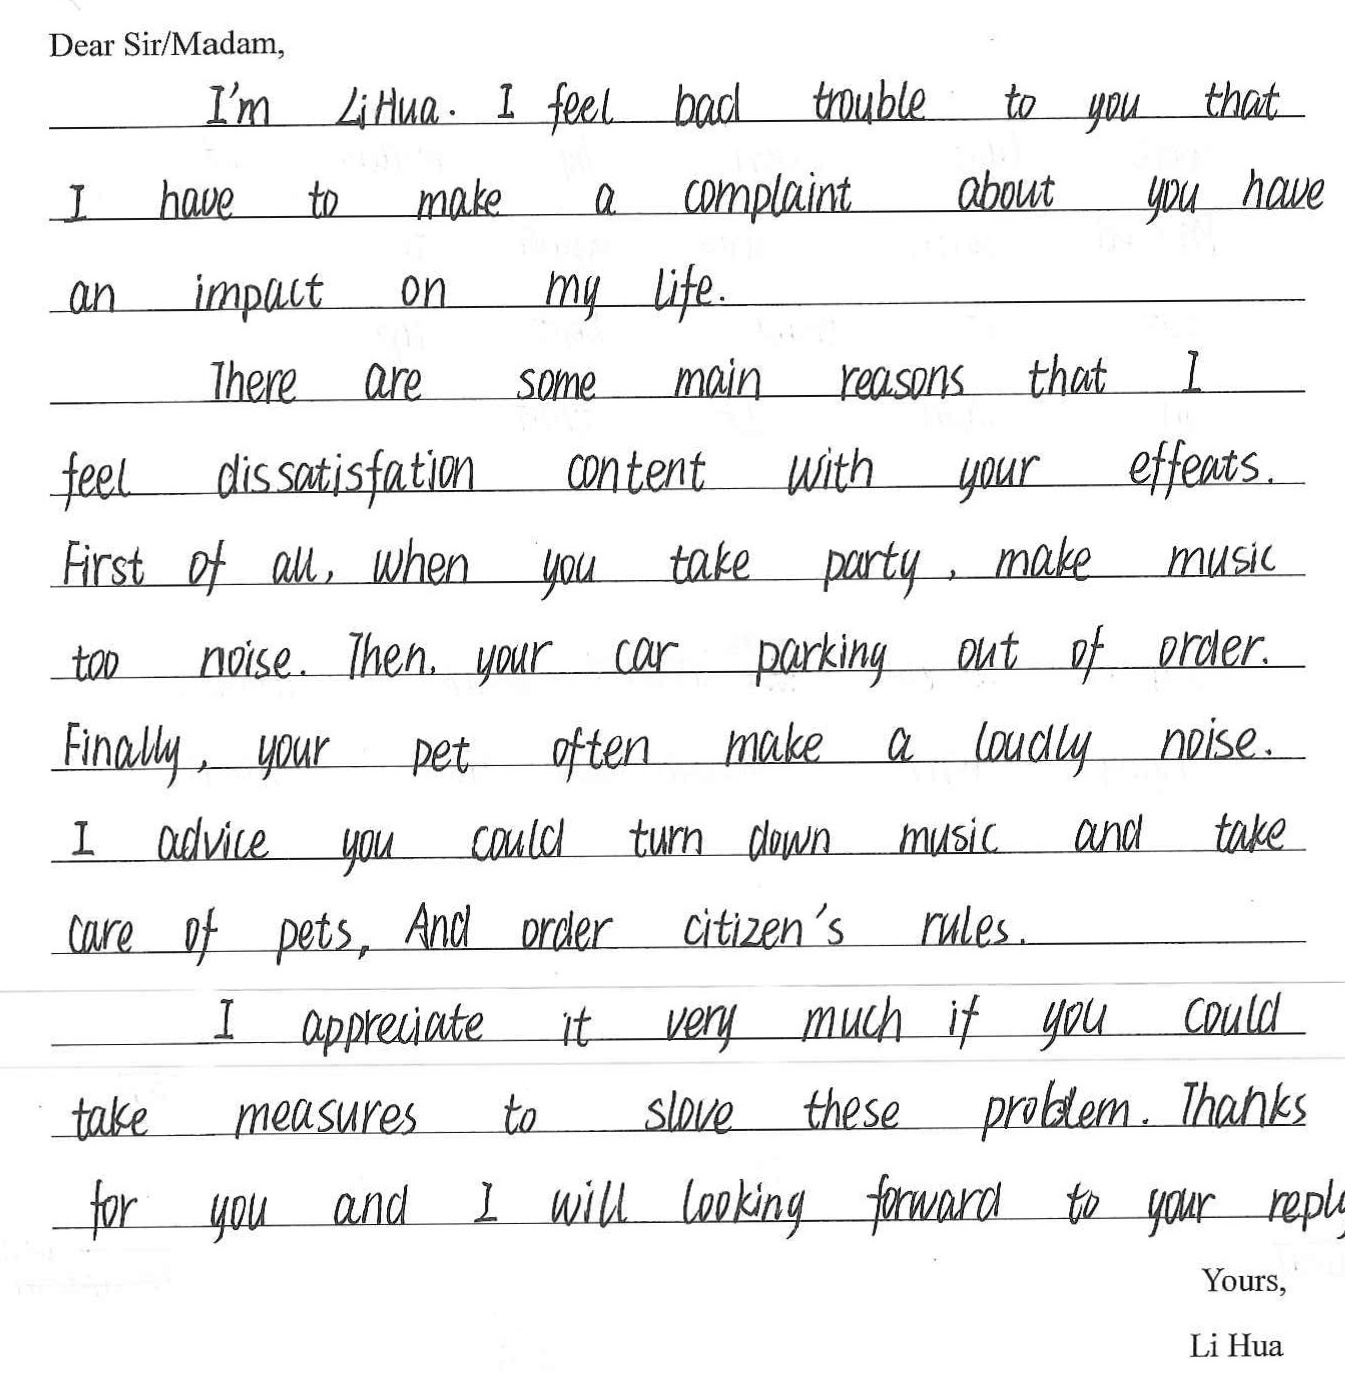 Dear Sir/Madam,
I'm Li Hua. I feel bad trouble to you that
I have to make a complaint about you have
an impact on my life.
There are some main reasons that I
feel dissatisfation content with your effeats.
First of all, when you take party, make music
too noise. Then, your car parking out of order.
Finally, your pet often make a loudly noise.
I advice you could turn down music and take
care of pets, And order citizen's rules.
I appreciate it very much if you could
take measures to slove these problem. Thanks
for you and I will looking forward to your reply
Yours,
Li Hua